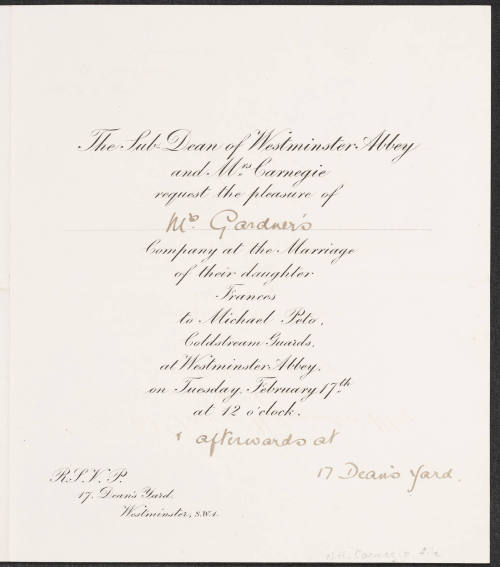 The Sub-Dean of Westminster Abbey
and Mrs Carnegie
request the pleasure of
Mrs. Gardner's
Company at the Marriage
of their daughter
Frances
to Michael Peto,
Coldstream Guards,
at Westminster Abbey,
on Tuesday, February 17th
at 12 o'clock.
& afterwards at
17 Dean's Yard.
R.S.V.P.
17, Dean's Yard,
Westminster, S.W.1.
Carnegie